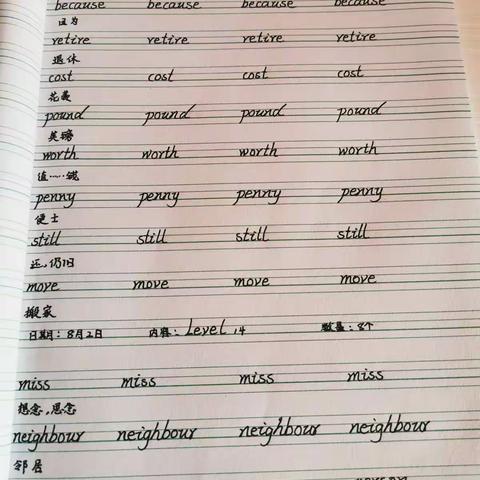 because because because because
因为
retire retire retire retire
退休
cost cost cost cost
花费
pound pound pound pound
英镑
worth worth worth worth
值……钱
penny penny penny penny
便士
still still still still
还,仍旧
move move move move
搬家
日期:8月2日 内容:Level 14 数量:8个
miss miss miss miss
想念,思念
neighbour neighbour neighbour neighbour
邻居